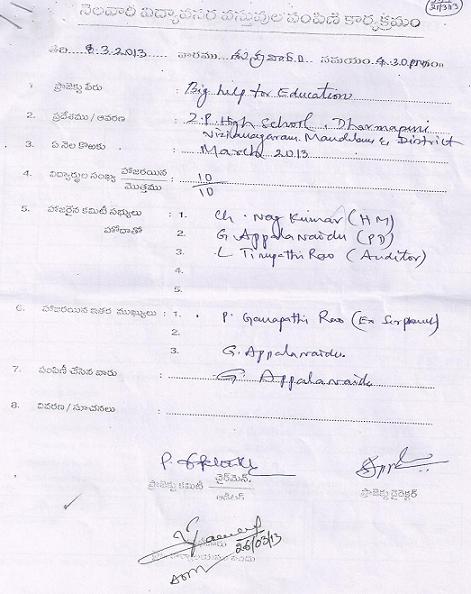 నెలవారి విద్యావసర వస్తువుల పంపిణి కార్యక్రమం
తేది 8.3.2013 వారము శుక్రవారం సమయం 4.30pm
1. ప్రాజెక్టు పేరు : Big help for Education
2. ప్రదేశము / ఆవరణ : Z.P. High School, Dharmapuri
Vizianagaram Mandalam & District
3. ఏ నెల కొఱకు : March 2013
4. విద్యార్థుల సంఖ్య హాజరయిన : 10
మొత్తము 10
5. హాజరైన కమిటీ సభ్యులు : 1. Ch. Nag Kumar (HM)
హోదాతో 2. G. Appalanaidu (PD)
3. L Tirupathi Rao (Auditor)
4.
5.
6. హాజరయిన ఇతర ముఖ్యులు : 1. P. Ganapathi Rao (Ex Surpanch)
2.
3. G. Appalanaidu.
7. పంపిణీ చేసిన వారు : G. Appalanaidu
8. వివరణ / సూచనలు :
ప్రాజెక్టు కమిటీ ఛైర్మెన్
ఆడిటర్
ప్రాజెక్టు డైరెక్టర్
26/03/13